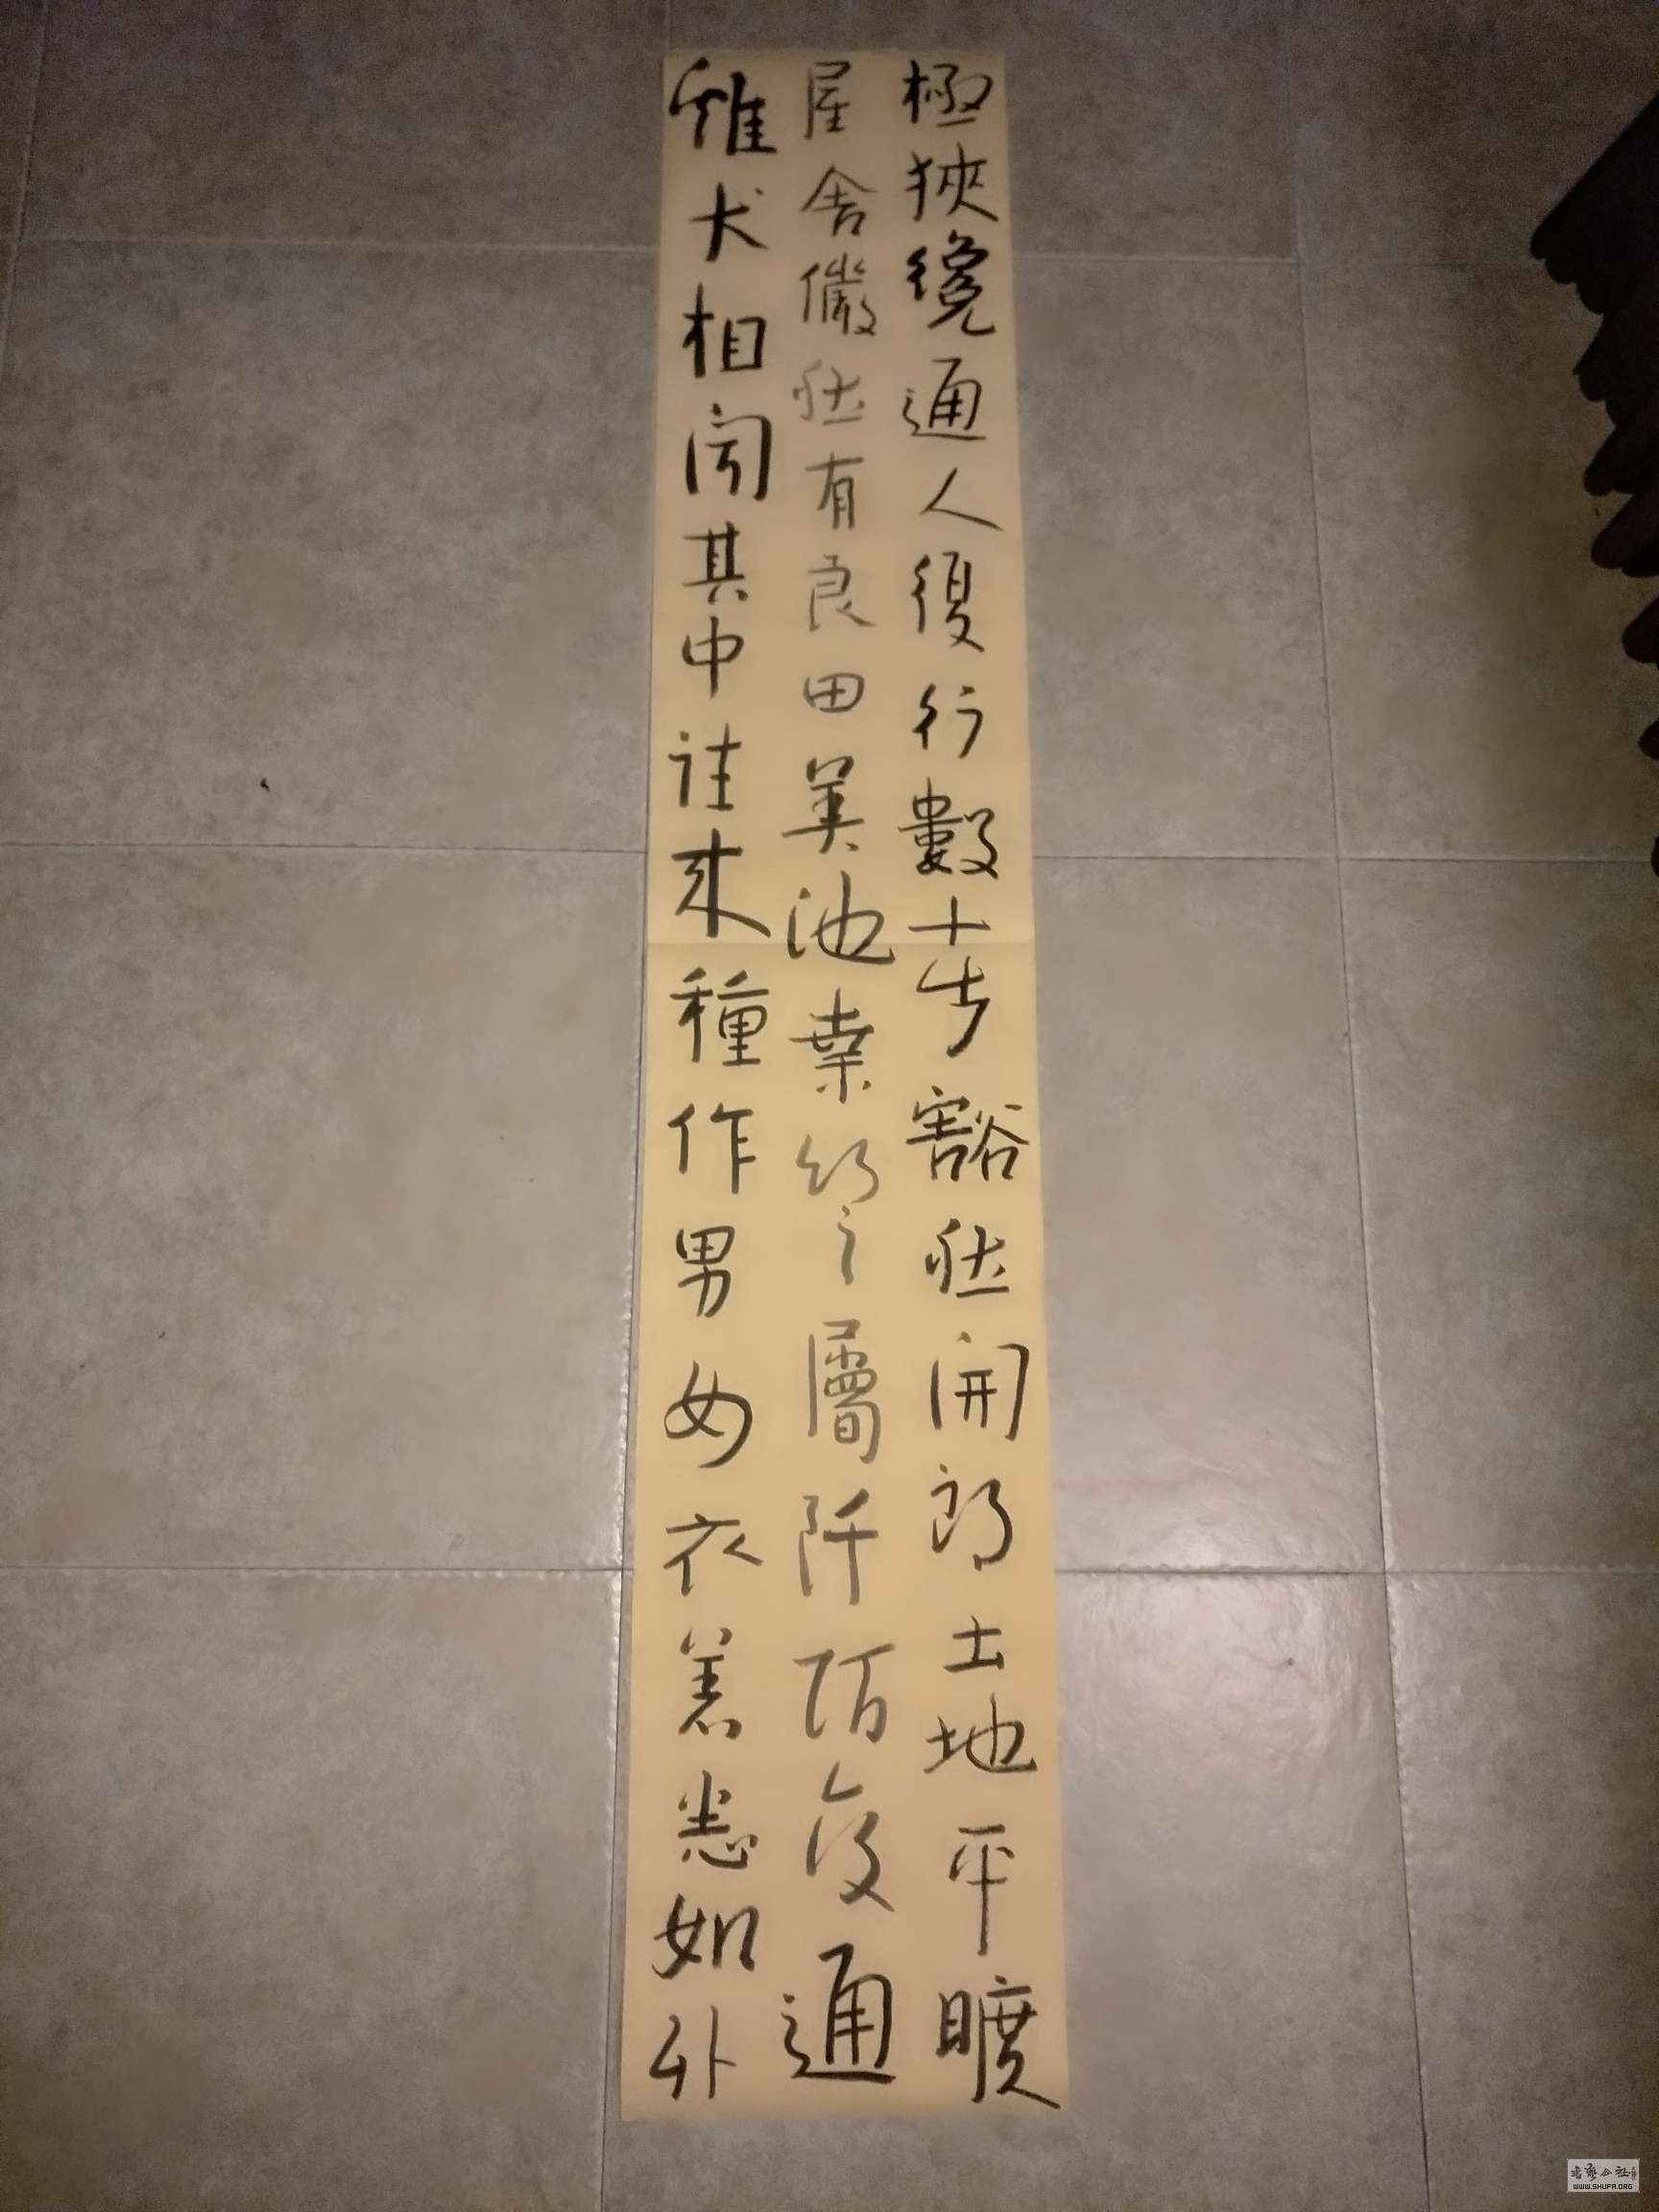 極狹纔通人復行數十步豁然開朗土地平曠
屋舍儼然有良田美池桑竹之屬阡陌交通
雞犬相聞其中往來種作男女衣著悉如外
书艺公社
WWW.SHUFA.ORG